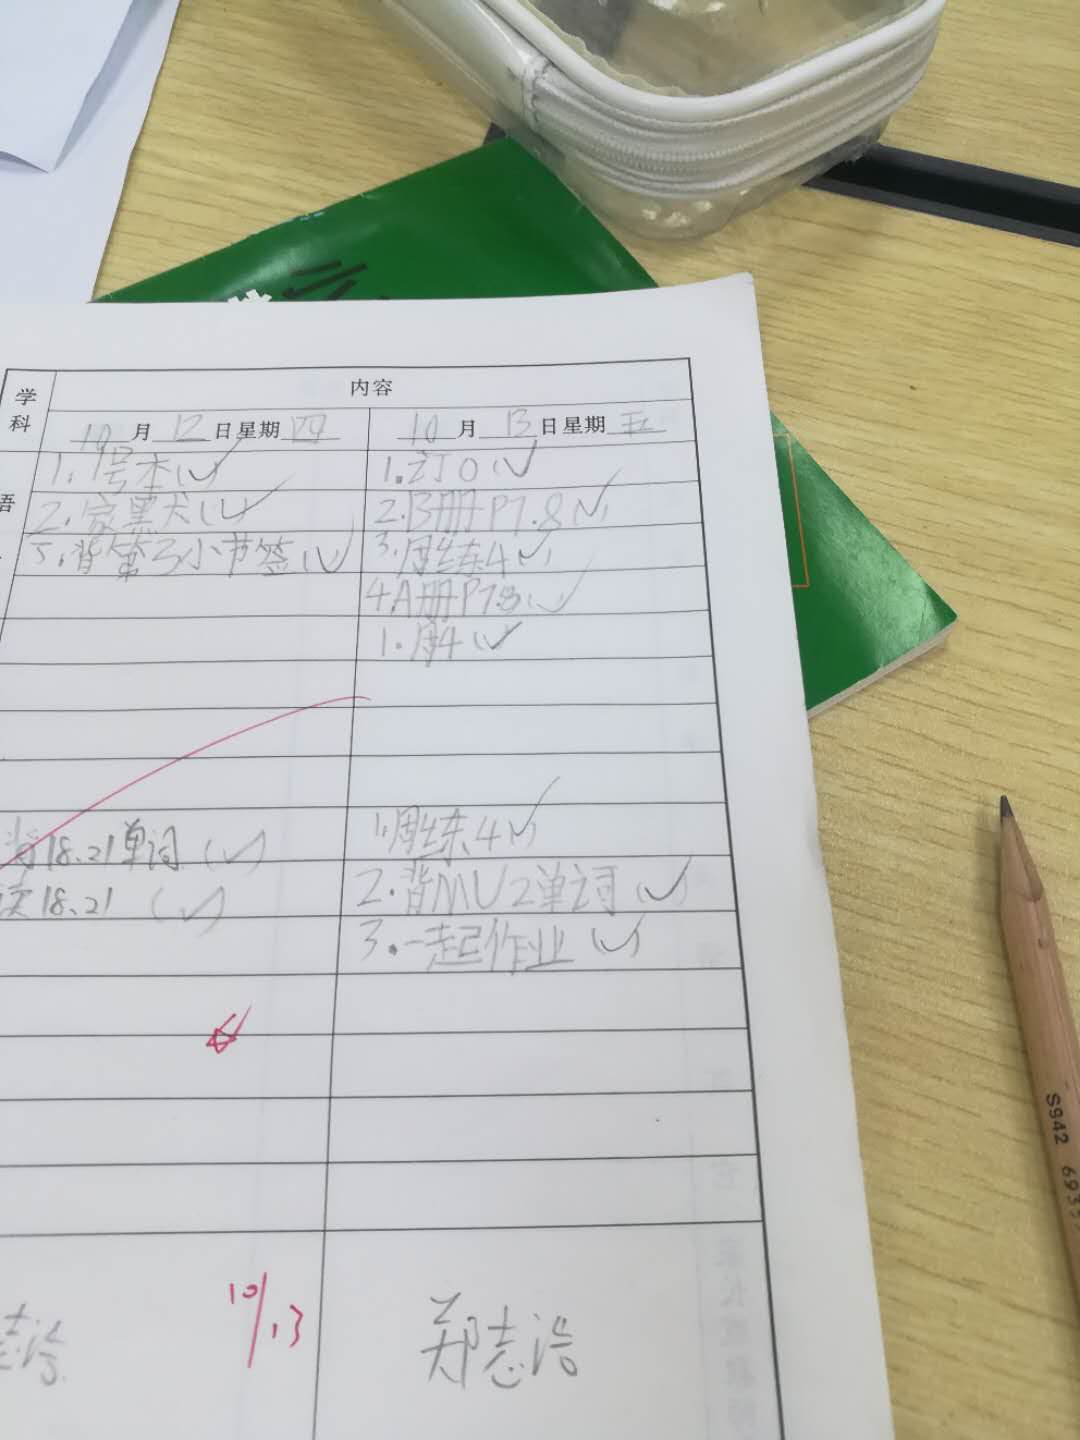 学科
内容
10月12日星期四
10月13日星期五
语
1.1号本(✓)
1.订0(✓)
2.家黑犬(✓)
2.B册P7.8(✓)
3.背第3小节签(✓)
3.周练4(✓)
4.A册P7.8(✓)
1.周4(✓)
背18.21单词(✓)
1.周练4(✓)
读18.21(✓)
2.背M4U2单词(✓)
3.一起作业(✓)
10/13
志浩
郑志浩
S942 693